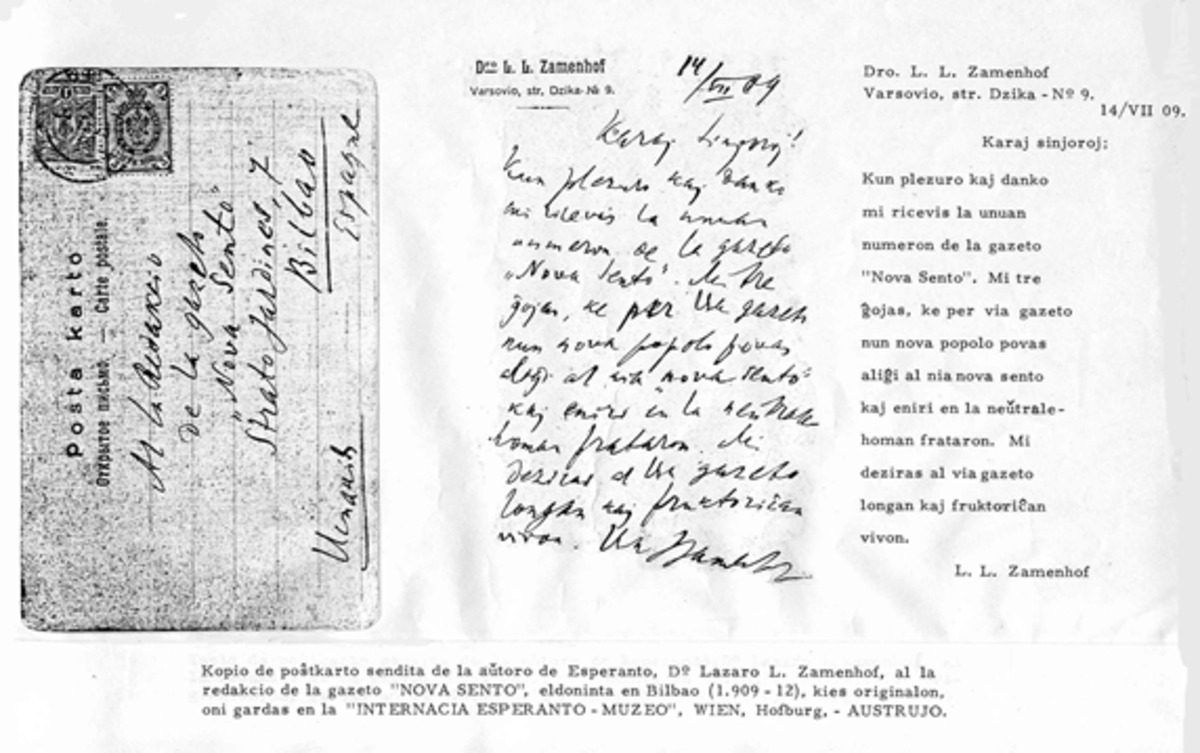 Posta karto
Открытое письмо. — Carte postale.
Al la Redakcio
de la gazeto
„Nova Sento“
Strato Jardines, 7
Bilbao
Espagne
Испанія
Dro L. L. Zamenhof
Varsovio, str. Dzika-№ 9.
14/VII 09
Karaj Sinjoroj!
Kun plezuro kaj danko
mi ricevis la unuan
numeron de la gazeto
„Nova Sento“. Mi tre
ĝojas, ke per Via gazeto
nun nova popolo povas
aliĝi al nia „nova sento“
kaj eniri en la neŭtrale
homan frataron. Mi
deziras al Via gazeto
longan kaj fruktoriĉan
vivon. Via Zamenhof
Dro. L. L. Zamenhof
Varsovio, str. Dzika - Nº 9.
14/VII 09.
Karaj sinjoroj;
Kun plezuro kaj danko
mi ricevis la unuan
numeron de la gazeto
"Nova Sento". Mi tre
ĝojas, ke per via gazeto
nun nova popolo povas
aliĝi al nia nova sento
kaj eniri en la neŭtrale-
homan frataron. Mi
deziras al via gazeto
longan kaj fruktoriĉan
vivon.
L. L. Zamenhof
Kopio de poŝtkarto sendita de la aŭtoro de Esperanto, Dº Lazaro L. Zamenhof, al la
redakcio de la gazeto "NOVA SENTO", eldoninta en Bilbao (1.909 - 12), kies originalon,
oni gardas en la "INTERNACIA ESPERANTO - MUZEO", WIEN, Hofburg, - AUSTRUJO.